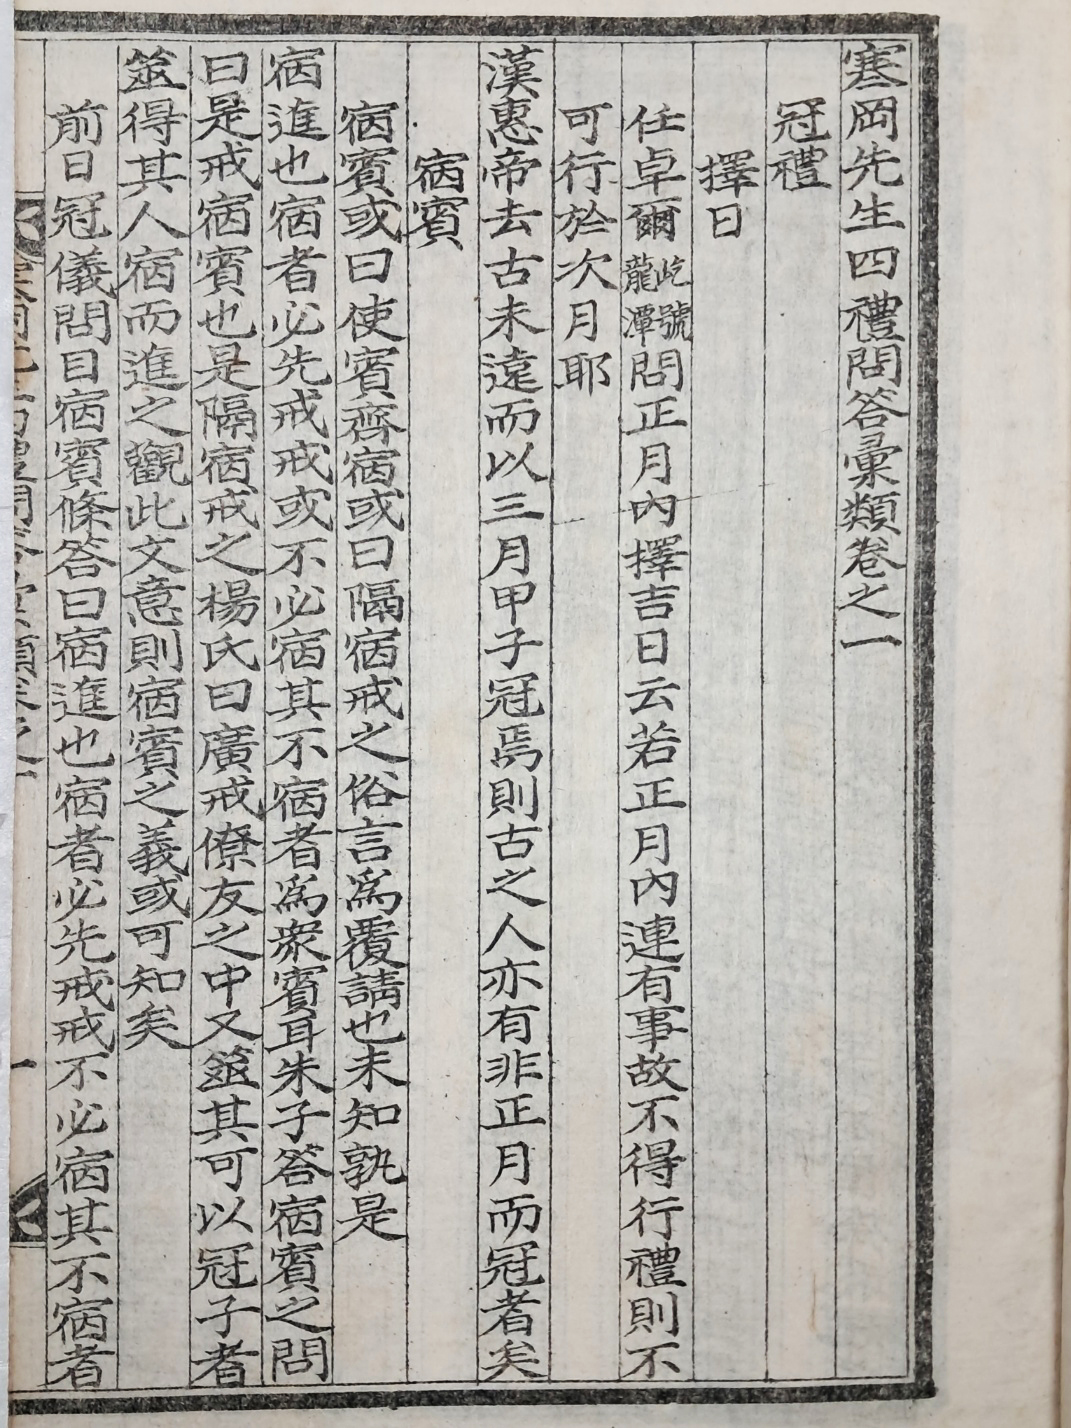 寒岡先生四禮問答彙類卷之一
冠禮
擇日
任卓爾屹號龍潭問正月內擇吉日云若正月內連有事故不得行禮則不
可行於次月耶
漢惠帝去古未遠而以三月甲子冠焉則古之人亦有非正月而冠者矣
宿賓
宿賓或曰使賓齊宿或曰隔宿戒之俗言爲覆請也未知孰是
宿進也宿者必先戒戒或不必宿其不宿者爲衆賓耳朱子答宿賓之問
曰是戒宿賓也是隔宿戒之楊氏曰廣戒僚友之中又筮其可以冠子者
筮得其人宿而進之觀此文意則宿賓之義或可知矣
前日冠儀問目宿賓條答曰宿進也宿者必先戒戒不必宿其不宿者